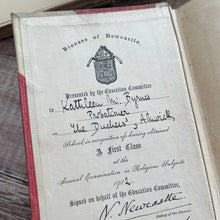 Diocese of Newcastle.
Presented by the Education Committee
to Kathleen M. Byrnes
Probationer
in the Duchess's Alnwick
School, in recognition of having attained
A First Class
at the
Annual Examination in Religious Subjects
1912
Signed on behalf of the Education Committee,
N. Newcastle
Bishop of the Diocese